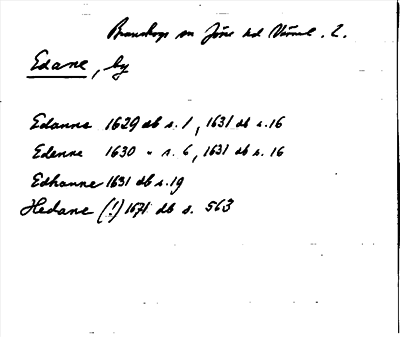 Brunskogs sn Jösse hd Värml. l.
Edane, by
Edanne 1629 db s. 1, 1631 db s. 16
Edenne 1630 " s. 6, 1631 db s. 16
Edhanne 1631 db s. 19
Hedane (!) 1671 db s. 563